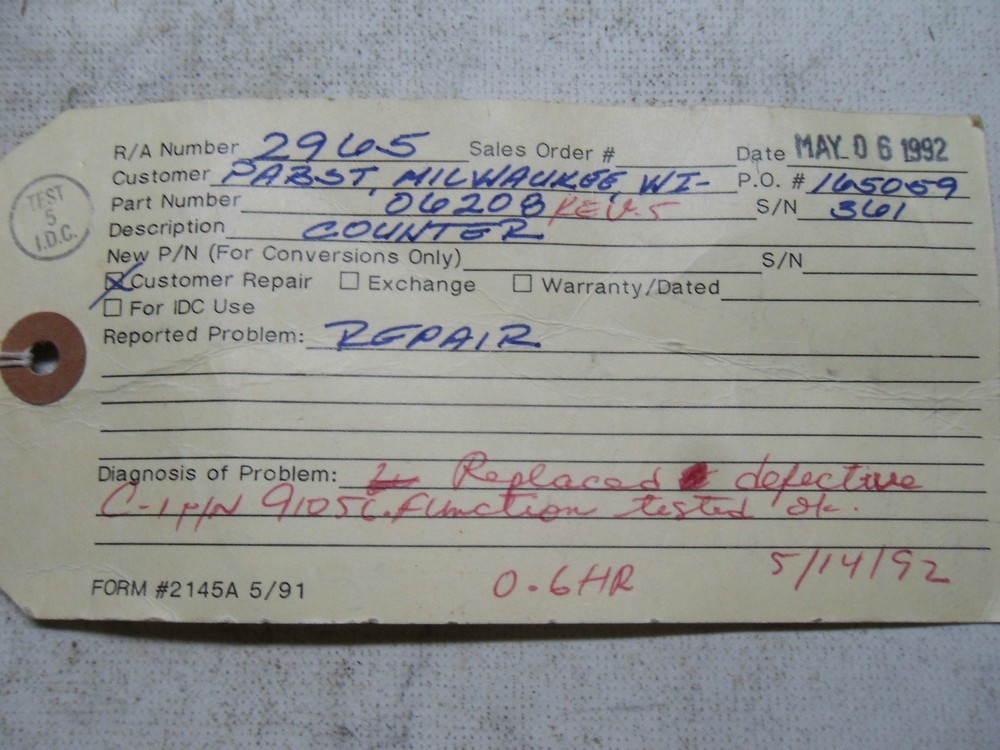 R/A Number 2965 Sales Order # Date MAY 06 1992
Customer PABST, MILWAUKEE, WI- P.O. # 165059
Part Number 06208 REV.5 S/N 361
Description COUNTER
New P/N (For Conversions Only) S/N
Customer Repair Exchange Warranty/Dated
For IDC Use
Reported Problem: REPAIR
Diagnosis of Problem: Replaced defective
C-1 P/N 91056. function tested ok.
0.6HR 5/14/92
FORM #2145A 5/91
TEST
5
I.D.C.